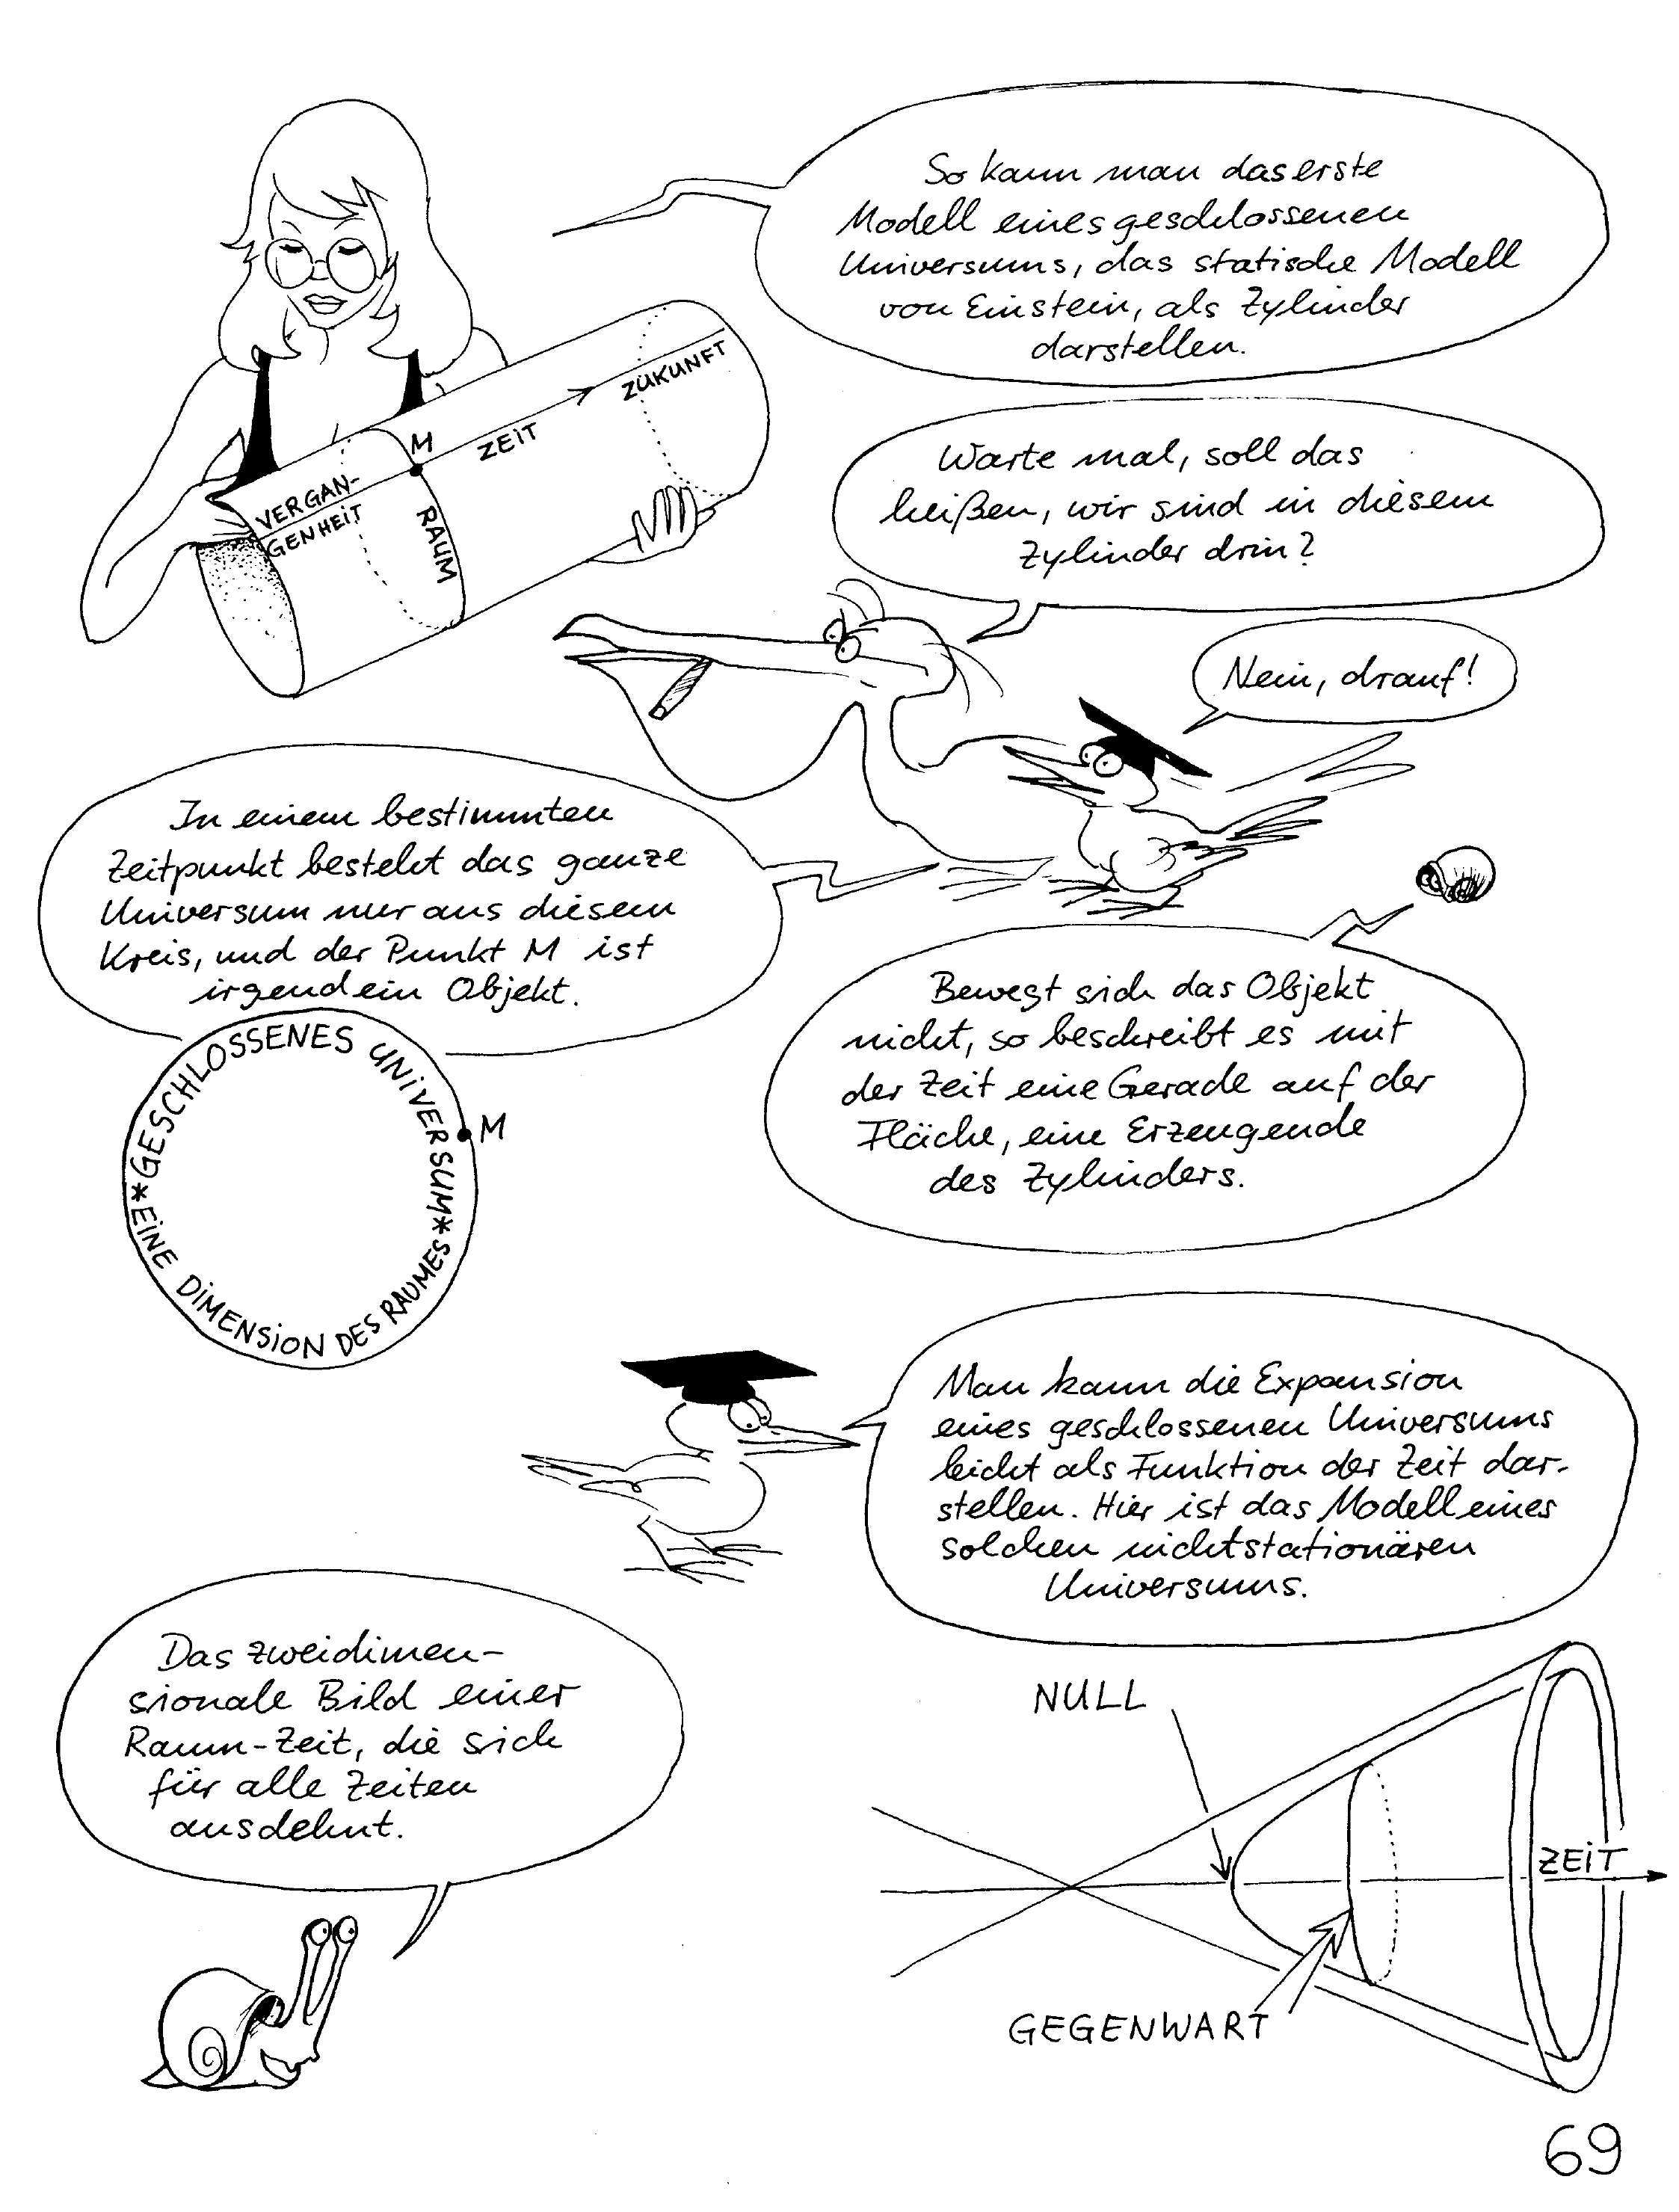 So kann man das erste
Modell eines geschlossenen
Universums, das statische Modell
von Einstein, als Zylinder
darstellen.
ZUKUNFT
M
ZEIT
VERGAN-
GENHEIT
RAUM
Warte mal, soll das
heißen, wir sind in diesem
Zylinder drin?
Nein, drauf!
In einem bestimmten
Zeitpunkt besteht das ganze
Universum nur aus diesem
Kreis, und der Punkt M ist
irgendein Objekt.
*GESCHLOSSENES UNIVERSUM*
EINE DIMENSION DES RAUMES
M
Bewegt sich das Objekt
nicht, so beschreibt es mit
der Zeit eine Gerade auf der
Fläche, eine Erzeugende
des Zylinders.
Man kann die Expansion
eines geschlossenen Universums
leicht als Funktion der Zeit dar-
stellen. Hier ist das Modell eines
solchen nichtstationären
Universums.
Das zweidimen-
sionale Bild einer
Raum-Zeit, die sich
für alle Zeiten
ausdehnt.
NULL
ZEIT
GEGENWART
69